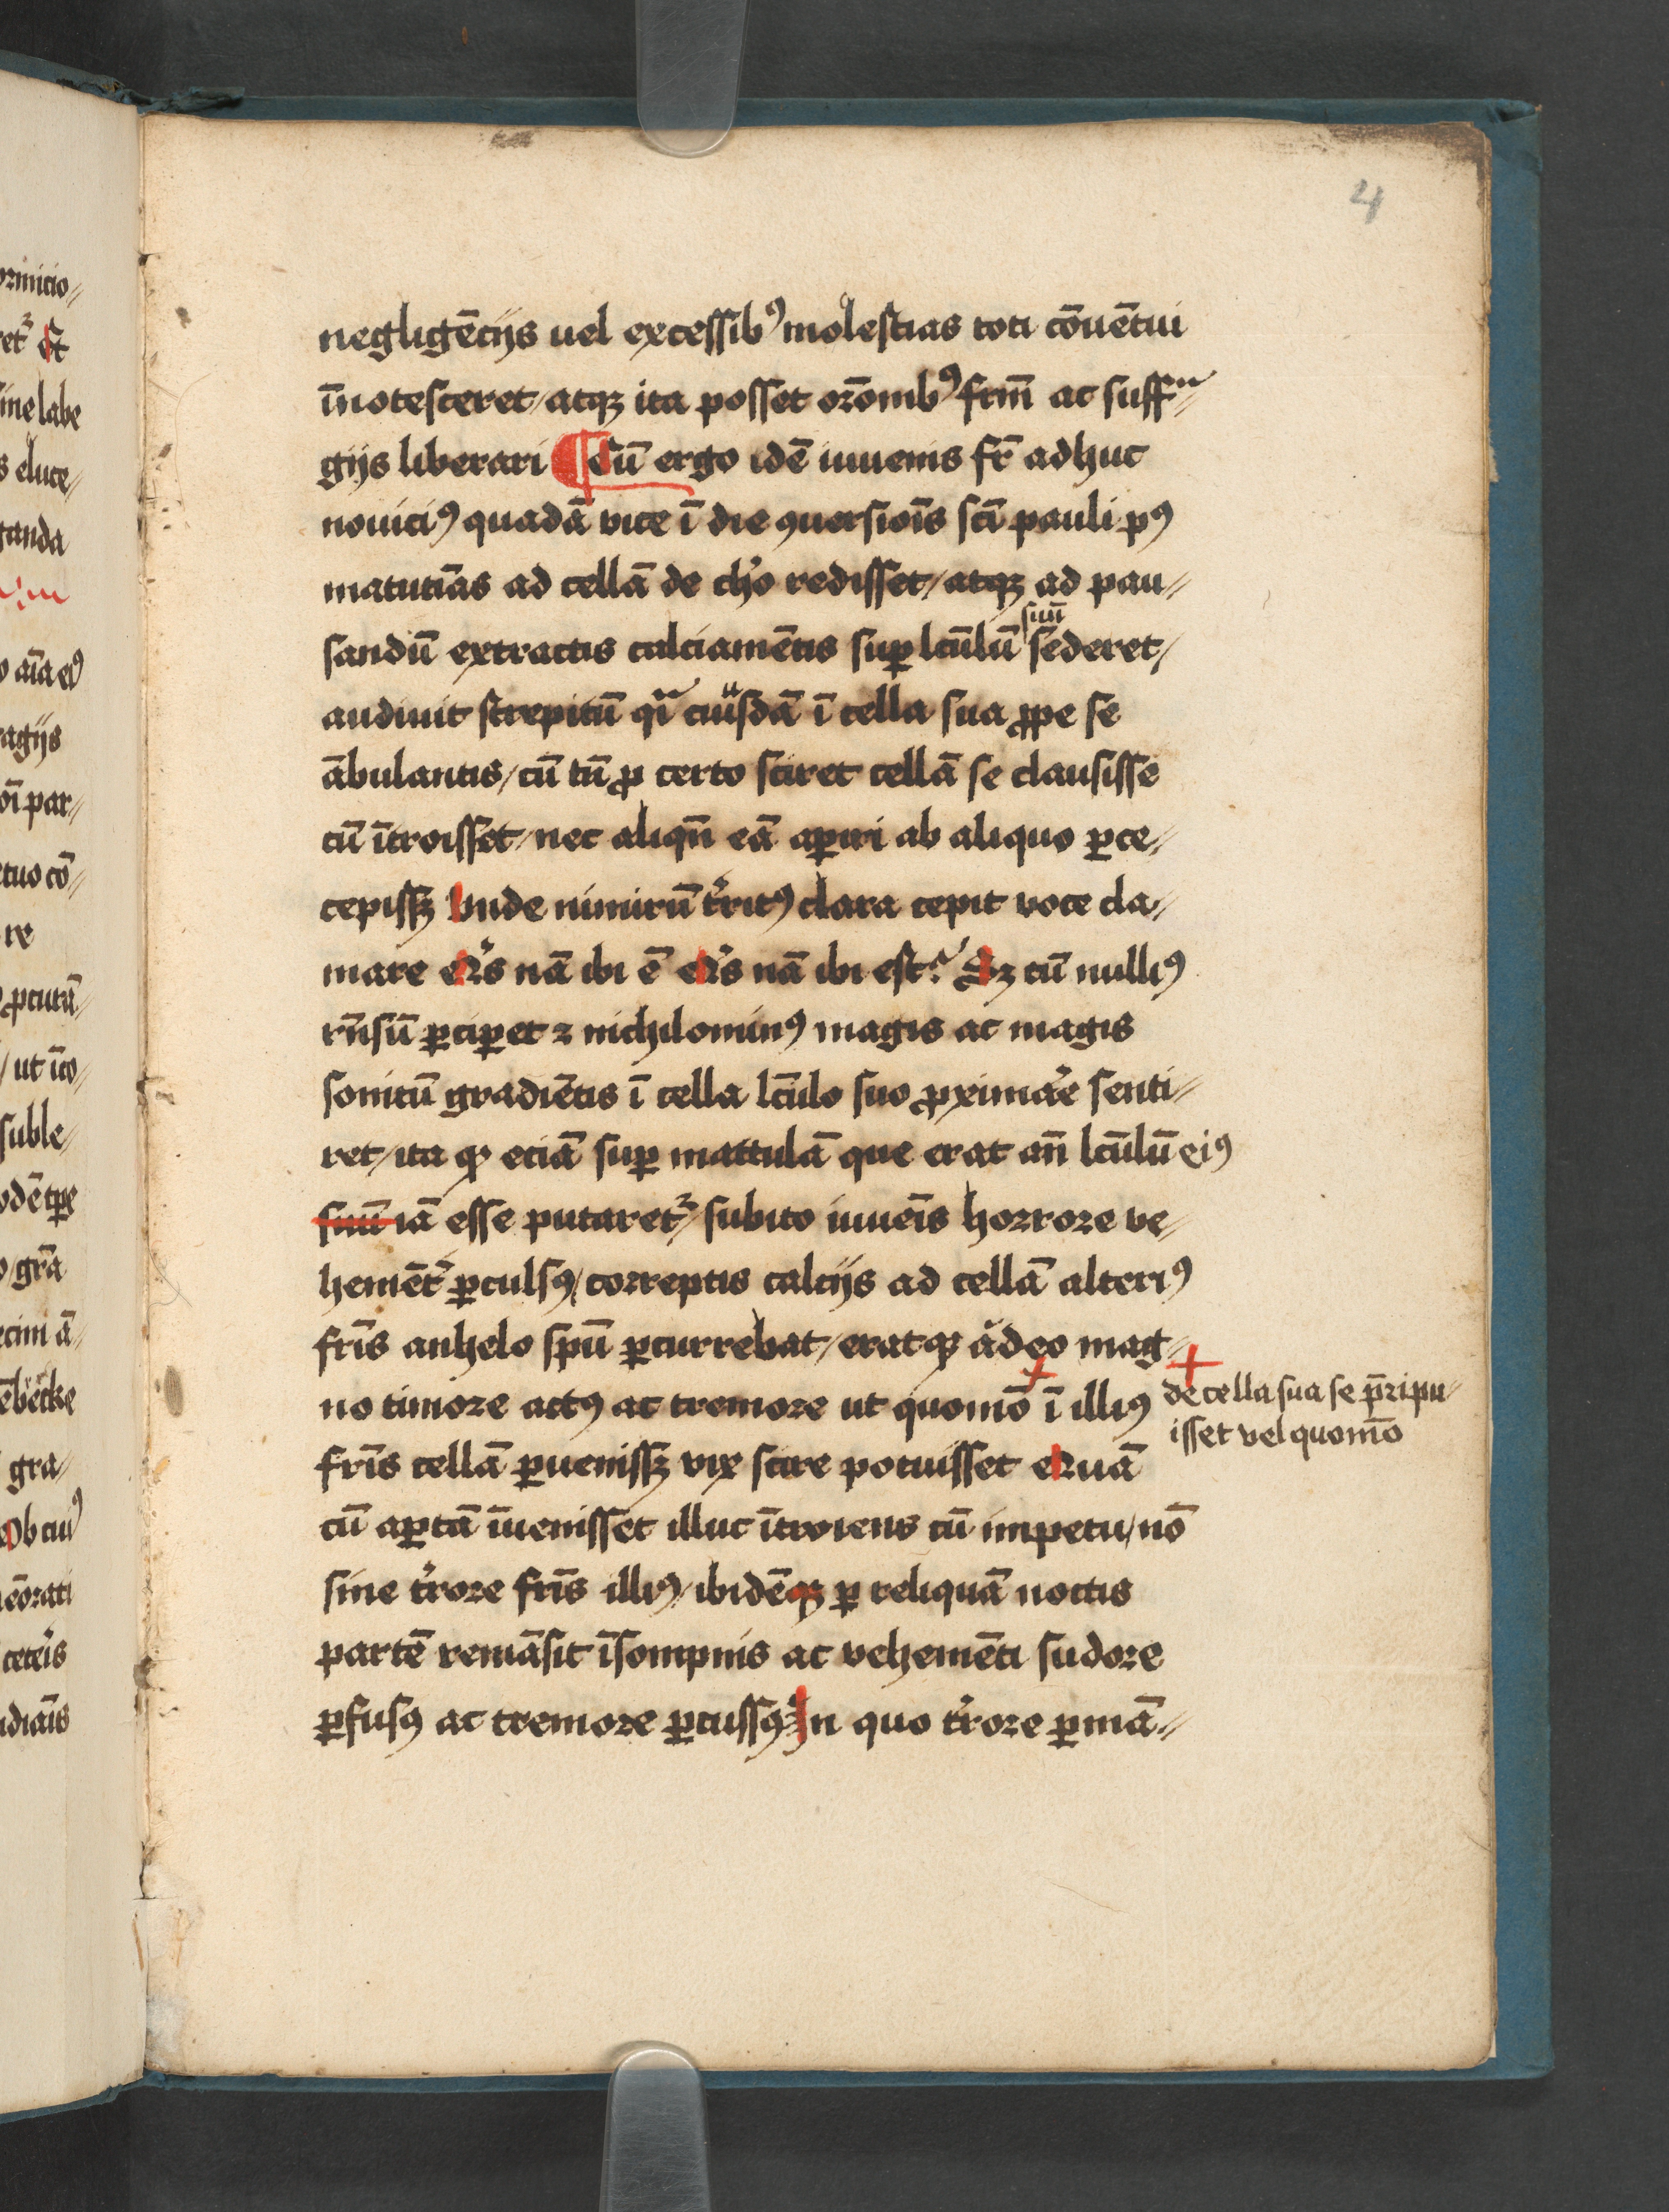 4
negligēcijs uel excessibꝰ molestias toti cōuētui
ī̄notesceret / atqꝫ ita posset orōnibꝰ frm̄ ac suffᵃ⸗
gijs liberari ¶ Cū ergo idē iuuenis fr̄ adhuc
nouiciꝰ quadā vice ī die ꝯuersiōis sc̄i pauli pꝰ
matutīas ad cellā de choͦ redisset / atqꝫ ad pau⸗
sandū extractis calciamētis suꝑ lc̄ulū suū sederet /
audiuit strepitū qͣi cuiusdā ī cella sua ꝓpe se
ābulantis / cū tn̄ ꝓ certo sciret cellā se clausisse
cū ītroisset / nec aliqn̄ eā aꝑiri ab aliquo ꝑce⸗
cepissꝫ Vnde nimirū t̓ritꝰ clara cepit voce cla⸗
mare Qͥs nā ibi ē Qͥs nā ibi est? Sꝫ cū nulliꝰ
rn̄sū ꝑciꝑet ⁊ nichilominꝰ magis ac magis
sonitū gradiētis ī cella lc̄ulo suo ꝓximar̓e senti⸗
ret / ita ꝙ eciā suꝑ mattulā que erat an̄ lc̄ulū eiꝰ
suū iā esse putaretᷣ / subito iuuēis horrore ve⸗
hemēt̓ ꝑculsꝰ / correptis calcijs ad cellā alteriꝰ
fr̄is anhelo spū ꝑcurrebat / eratqꝫ adeo mag⸗
no timore actꝰ ac tremore ut quomō ī illiꝰ
fr̄is cellā ꝑuenissꝫ vix scire potuisset Quā
cū aꝑtā īuenisset illuc ītroiens cū impetu / nō
sine t̓rore fr̄is illiꝰ / ibidēqꝫ ꝑ reliquā noctis
partē remāsit īsompnis ac vehemēti sudore
ꝑfusꝰ ac tremore ꝑcussꝰ In quo t̓rore ꝑmā⸗
de cella sua se p̄ripu⸗
isset vel quomō